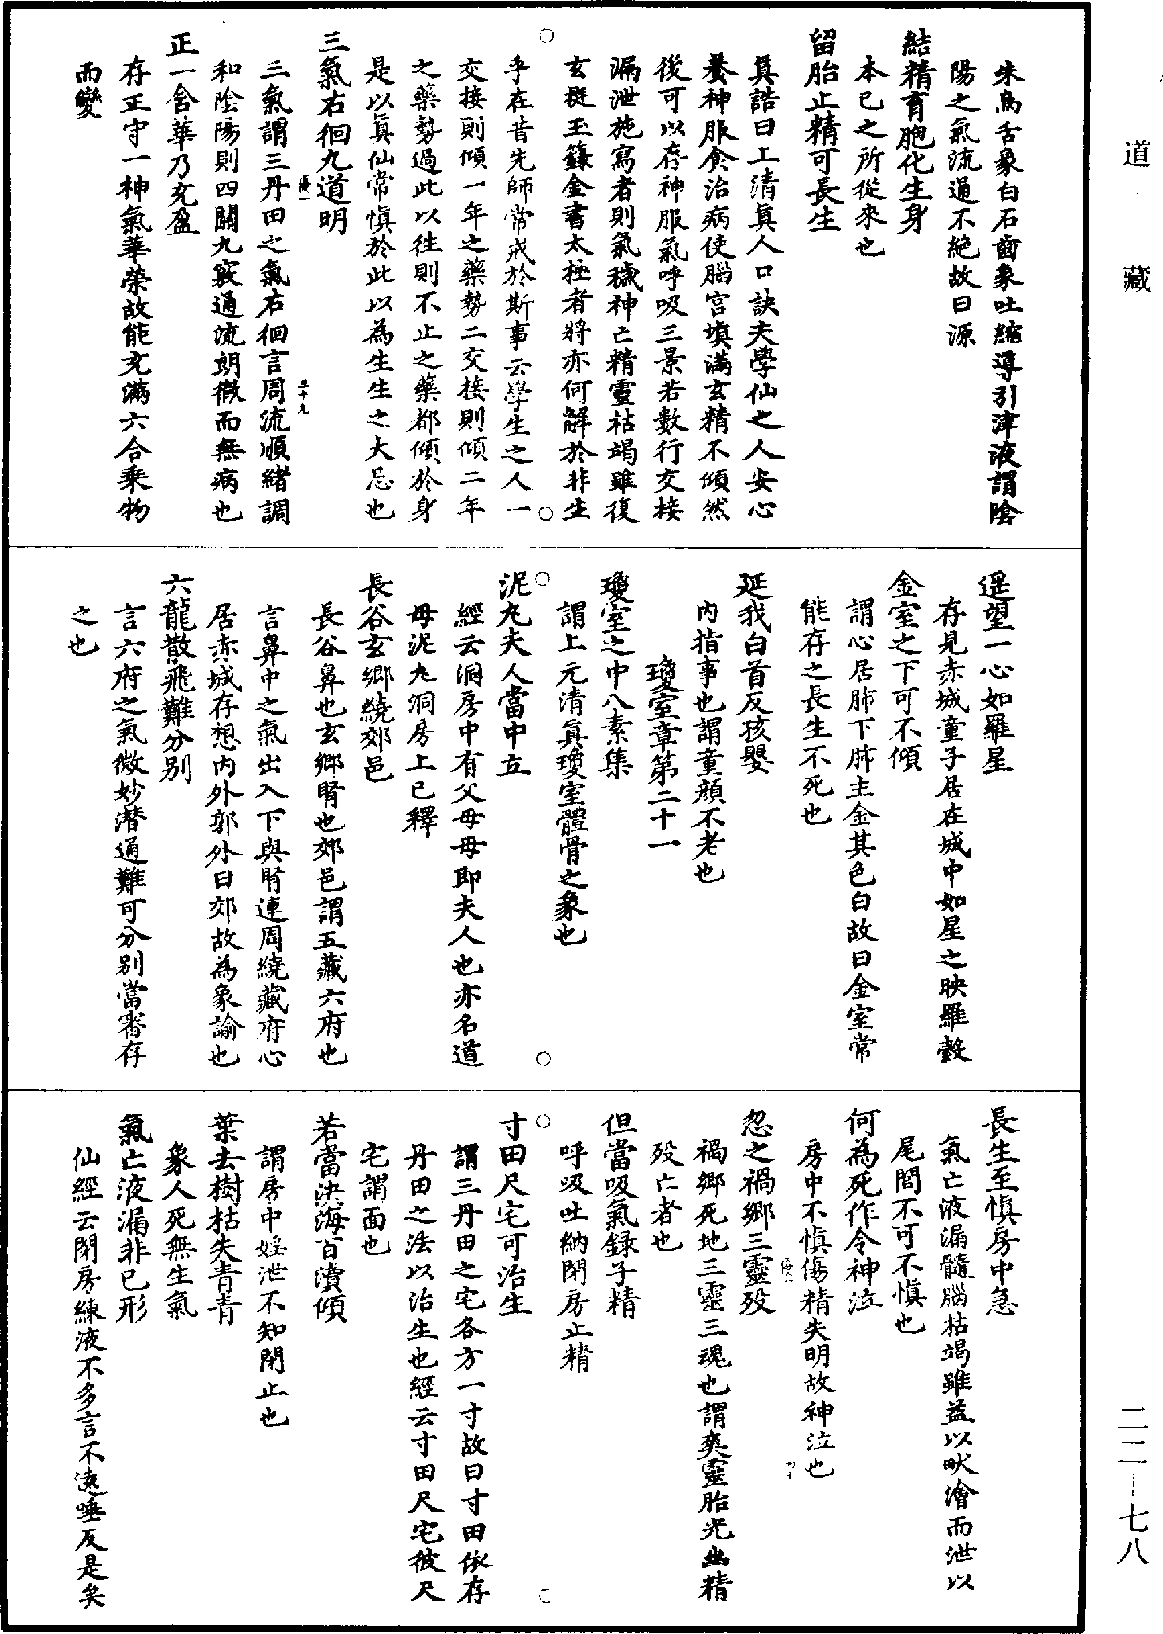 朱鳥舌象白石齒象吐縮導引津液謂陰
陽之氣流通不絕故曰源
結精育胞化生身
本已之所從來也
留胎止精可長生
真誥曰上清真人口訣夫學仙之人安心
養神服食治病使腦宮填滿玄精不傾然
後可以存神服氣呼吸三景若數行交接
漏泄施寫者則氣穢神亡精靈枯竭雖復
玄挺玉籙金書太極者將亦何解於非生
乎在昔先師常戒於斯事云學生之人一
交接則傾一年之藥勢二交接則傾二年
之藥勢過此以往則不止之藥都傾於身
是以真仙常慎於此以為生生之大忌也
三氣右徊九道明
三氣謂三丹田之氣右徊言周流順緒調
和陰陽則四關九竅通流朗徹而無病也
正一含華乃充盈
存正守一神氣華榮故能充滿六合乘物
而變
遥望一心如羅星
存見赤城童子居在城中如星之映羅縠
金室之下可不傾
謂心居肺下肺主金其色白故曰金室常
能存之長生不死也
延我白首反孩嬰
內指事也謂童顏不老也
瓊室章第二十一
瓊室之中八素集
謂上元清真瓊室體骨之象也
泥丸夫人當中立
經云洞房中有父母母即夫人也亦名道
母泥丸洞房上已釋
長谷玄鄉繞郊邑
長谷鼻也玄鄉腎也郊邑謂五藏六府也
言鼻中之氣出入下與腎連周繞藏府心
居赤城存想內外郭外曰郊故為象諭也
六龍散飛難分別
言六府之氣微妙潛通難可分別當審存
之也
長生至慎房中急
氣亡液漏髓腦枯竭雖益以畎澮而泄以
尾閭不可不慎也
何為死作令神泣
房中不慎傷精失明故神泣也
忽之禍鄉三靈歿
禍鄉死地三靈三魂也謂爽靈胎光幽精
歿亡者也
但當吸氣錄子精
呼吸吐納閉房止精
寸田尺宅可治生
謂三丹田之宅各方一寸故曰寸田依存
丹田之法以治生也經云寸田尺宅彼尺
宅謂面也
若當決海百瀆傾
謂房中婬泄不知閉止也
葉去樹枯失青青
象人死無生氣
氣亡液漏非已形
仙經云閉房練液不多言不遠唾反是矣
道藏
二二-七八